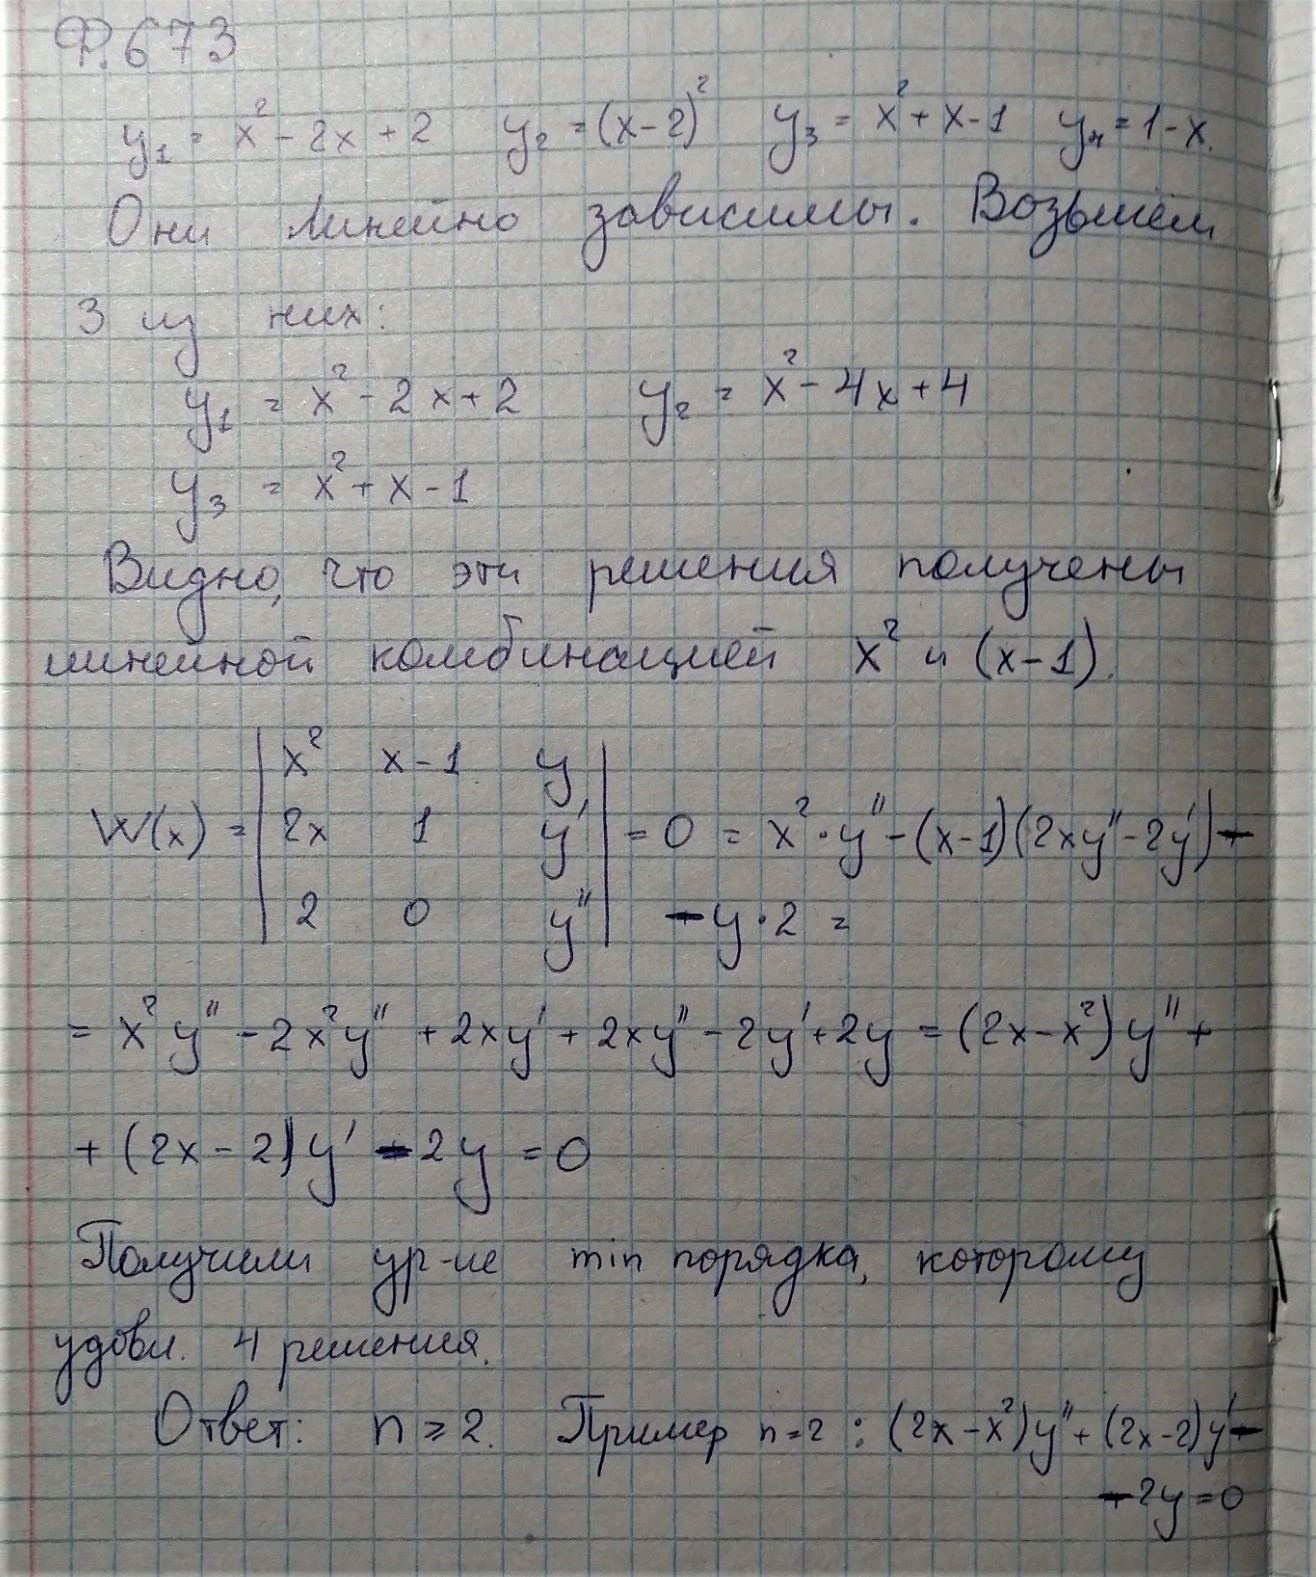 Ф.673
y₁ = x² - 2x + 2 y₂ = (x-2)² y₃ = x² + x - 1 y₄ = 1 - x.
Они линейно зависимы. Возьмём
3 из них:
y₁ = x² - 2x + 2 y₂ = x² - 4x + 4
y₃ = x² + x - 1
Видно, что эти решения получены
линейной комбинацией x² и (x-1).
W(x) = | x² x-1 y; 2x 1 y'; 2 0 y'' | = 0 = x²·y'' - (x-1)(2xy'' - 2y') -
- y·2 =
= x²y'' - 2x²y'' + 2xy' + 2xy'' - 2y' + 2y = (2x - x²)y'' +
+ (2x - 2)y' - 2y = 0
Получили ур-ие min порядка, которому
удовл. 4 решения.
Ответ: n ≥ 2. Пример n=2 : (2x - x²)y'' + (2x-2)y' -
- 2y = 0